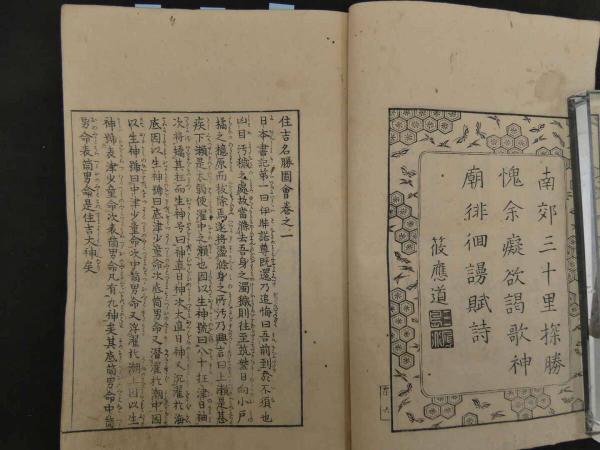 南郊三十里探勝
愧余癡欲謁歌神
廟徘徊謾賦詩
篠應道
住吉名勝圖會卷之一
日本書記第一曰伊弉諾尊既還乃追悔曰吾前到於不須也
凶目汚穢之處故當滌去吾身之濁穢則往至筑紫日向小戸
橘之檍原而祓除焉遂將盪滌身之所汚乃興言曰上瀬是太
疾下瀬是太弱便濯中之瀬也因以生神號曰八十枉津日神
次將矯其枉而生神号曰神直日神次大直日神又沉濯於海
底因以生神號曰底津少童命次底筒男命又潜濯於潮中因
以生神號曰中津少童命次中筒男命又浮濯於潮上因以生
神號表津少童命次表筒男命凡有九神矣其底筒男命中筒
男命表筒男命是住吉大神矣